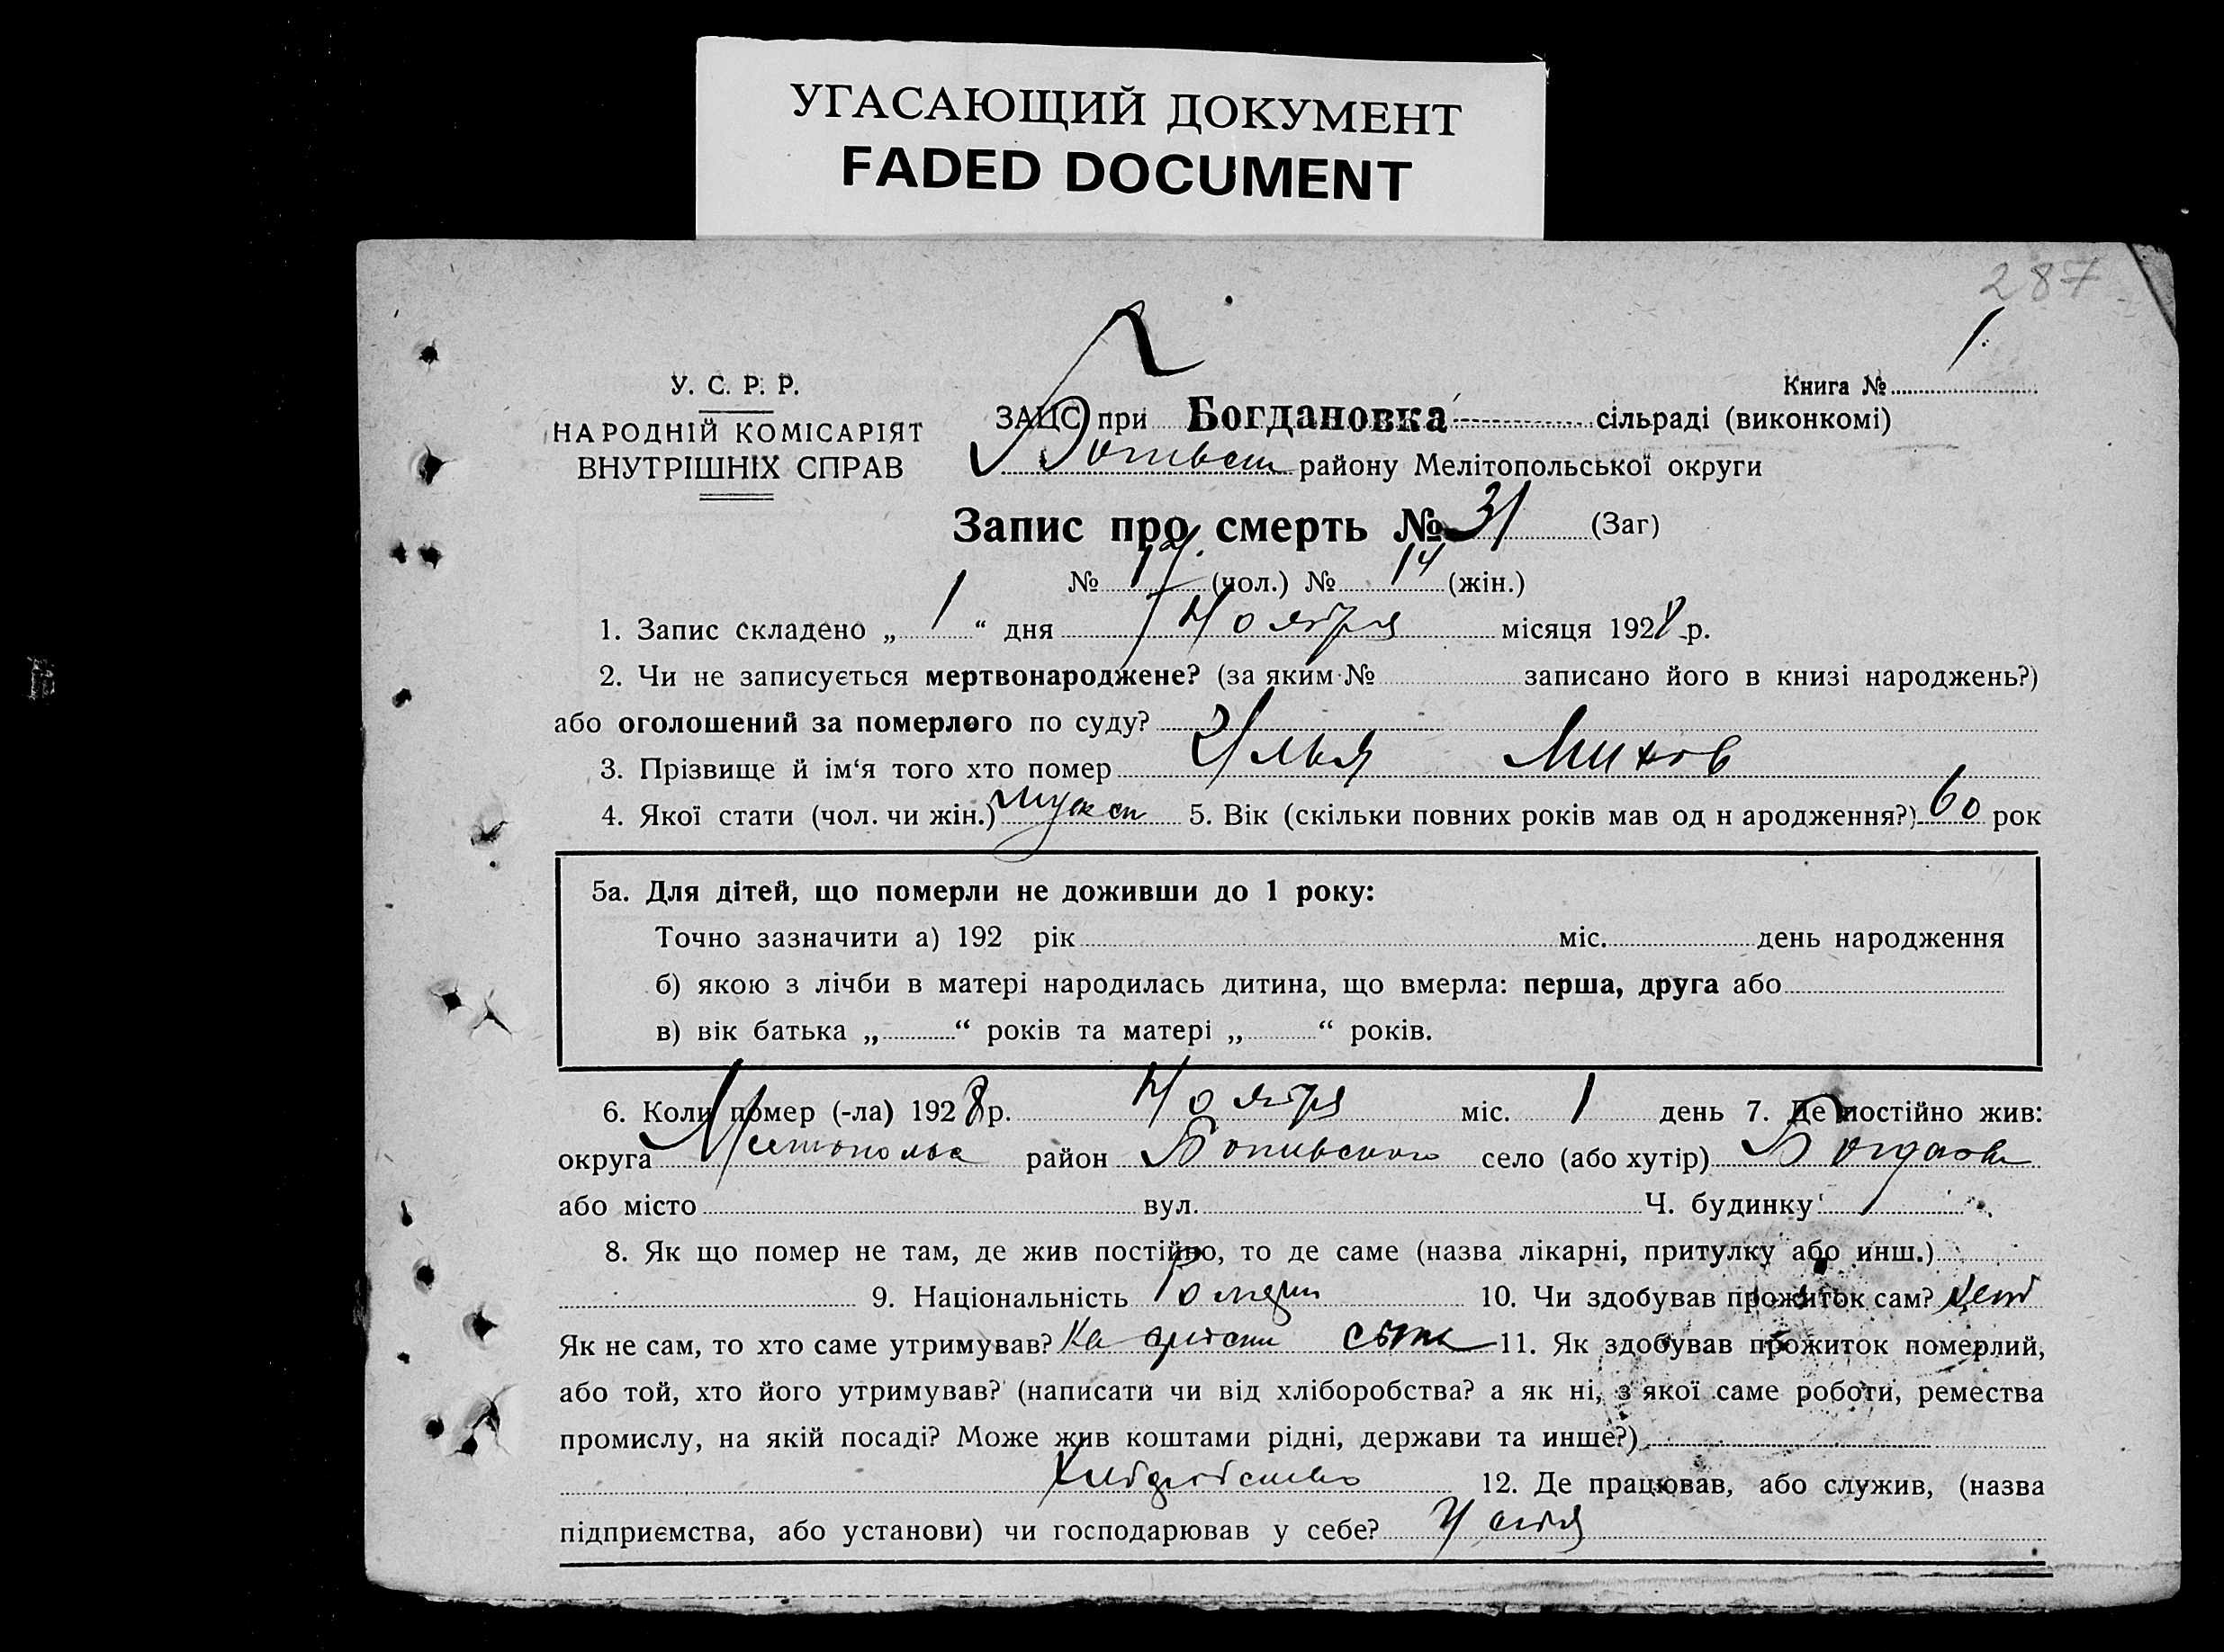 УГАСАЮЩИЙ ДОКУМЕНТ
FADED DOCUMENT
287
У. С. Р. Р.
НАРОДНІЙ КОМІСАРІЯТ
ВНУТРІШНІХ СПРАВ
Книга № 1
ЗАЦС при Богдановка сільраді (виконкомі)
району Мелітопольської округи
Запис про смерть № 31 (Заг)
№ 17 (чол.) № 14 (жін.)
1. Запис складено „ 1 “ дня Ноября місяця 1928 р.
2. Чи не записується мертвонароджене? (за яким № записано його в книзі народжень?)
або оголошений за померлого по суду?
3. Прізвище й ім‘я того хто помер Илья Михов
4. Якої стати (чол. чи жін.) 5. Вік (скільки повних років мав од н ародження?) 60 рок
5а. Для дітей, що померли не доживши до 1 року:
Точно зазначити а) 192 рік міс. день народження
б) якою з лічби в матері народилась дитина, що вмерла: перша, друга або
в) вік батька „ “ років та матері „ “ років.
6. Коли помер (-ла) 1928 р. Ноября міс. 1 день 7. Де постійно жив:
округа район село (або хутір)
або місто вул. Ч. будинку
8. Як що помер не там, де жив постійно, то де саме (назва лікарні, притулку або инш.)
9. Національність 10. Чи здобував прожиток сам?
Як не сам, то хто саме утримував? 11. Як здобував прожиток померлий,
або той, хто його утримував? (написати чи від хліборобства? а як ні, з якої саме роботи, ремества
промислу, на якій посаді? Може жив коштами рідні, держави та инше?)
12. Де працював, або служив, (назва
підприємства, або установи) чи господарював у себе? У себя